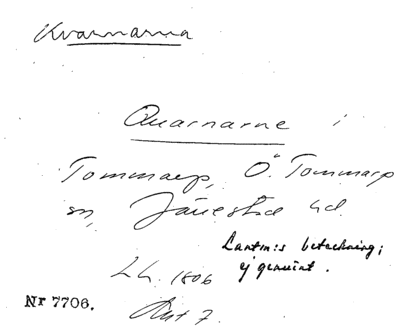 Kvarnarna
Quarnarne i
Tommarp, Ö. Tommarp
sn, Järrestad hd.
Lantm:s beteckning;
ej genuint.
LL. 1806
Akt 7.
Nr 7706.